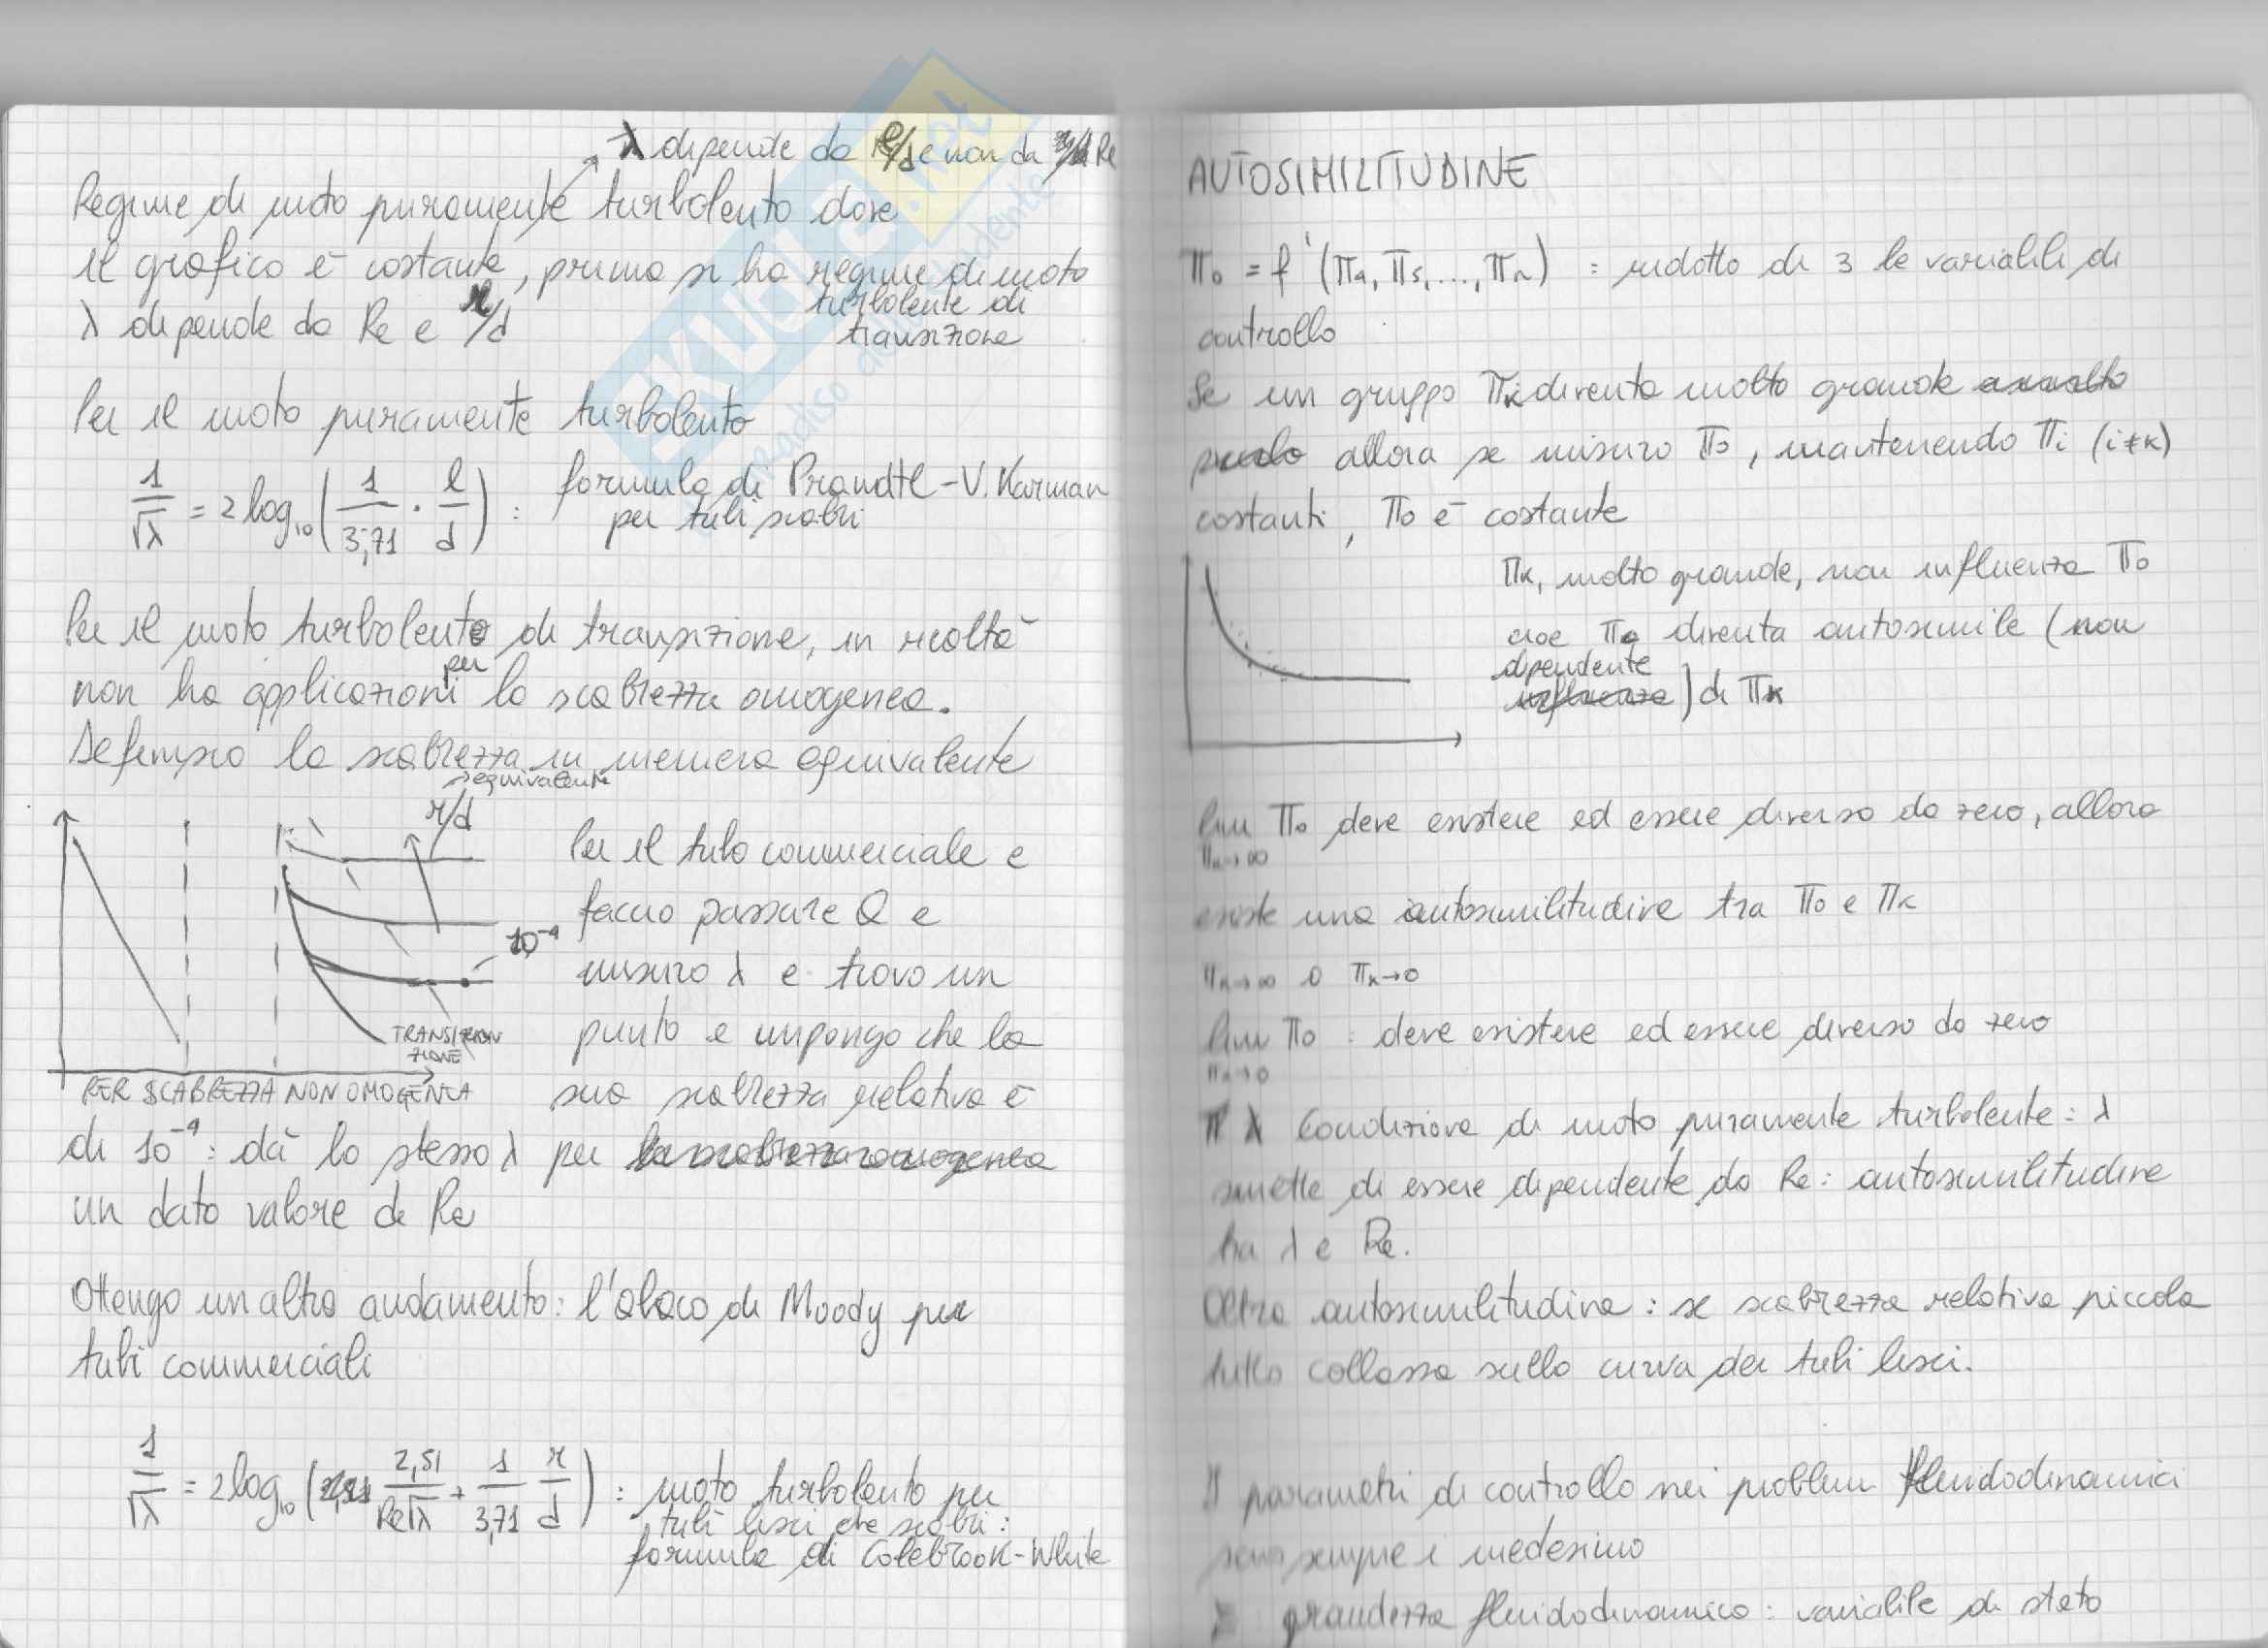 λ depende da e/d e non da Re
Regime di moto puramente turbolento dove
il grafico è costante, prima si ha regime di moto
turbolento di
transizione
λ dipende da Re e r/d
Per il moto puramente turbolento
1/√λ = 2 log10 (1/3,71 · l/d) : formula di Prandtl-V. Karman
per tubi scabri
Per il moto turbolento di transizione, in realtà
non ha applicazioni per la scabrezza omogenea.
Definisco la scabrezza in maniera equivalente
equivalente
r/d
10⁻⁴
TRANSIZIONE
PER SCABREZZA NON OMOGENEA
Per il tubo commerciale e
faccio passare Q e
misuro λ e trovo un
punto e impongo che la
sua scabrezza relativa è
di 10⁻⁴: dà lo stesso λ per la scabrezza omogenea
un dato valore di Re
Ottengo un altro andamento: l'abaco di Moody per
tubi commerciali
1/√λ = 2 log10 (2,51/Re√λ + 1/3,71 r/d) : moto turbolento per
tubi lisci che scabri:
formula di Colebrook-White
AUTOSIMILITUDINE
Π₀ = f'(Π₄, Π₅, ..., Πₙ) : ridotto di 3 le variabili di
controllo
Se un gruppo Πₖ diventa molto grande o molto
piccolo allora se misuro Π₀, mantenendo Πᵢ (i≠k)
costanti, Π₀ è costante
Πₖ, molto grande, non influenza Π₀
cioè Π₀ diventa autosimile (non
dipendente
influenza) di Πₖ
lim Π₀ deve esistere ed essere diverso da zero, allora
Πₖ→∞
esiste una autosimilitudine tra Π₀ e Πₖ
Πₖ→∞ o Πₖ→0
lim Π₀ : deve esistere ed essere diverso da zero
Πₖ→0
λ Condizione di moto puramente turbolente: λ
smette di essere dipendente da Re: autosimilitudine
tra λ e Re.
Altra autosimilitudine: se scabrezza relativa piccola
tutto collassa sulla curva dei tubi lisci.
I parametri di controllo nei problemi fluidodinamici
sono sempre i medesimo
grandezza fluidodinamico: variabile di stato